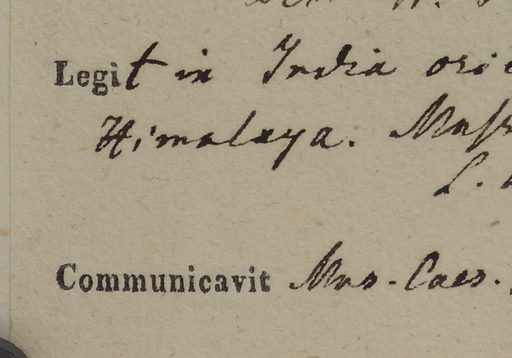 Legit in India ori
Himalaya. Muss
L.
Communicavit Mus. Caes.